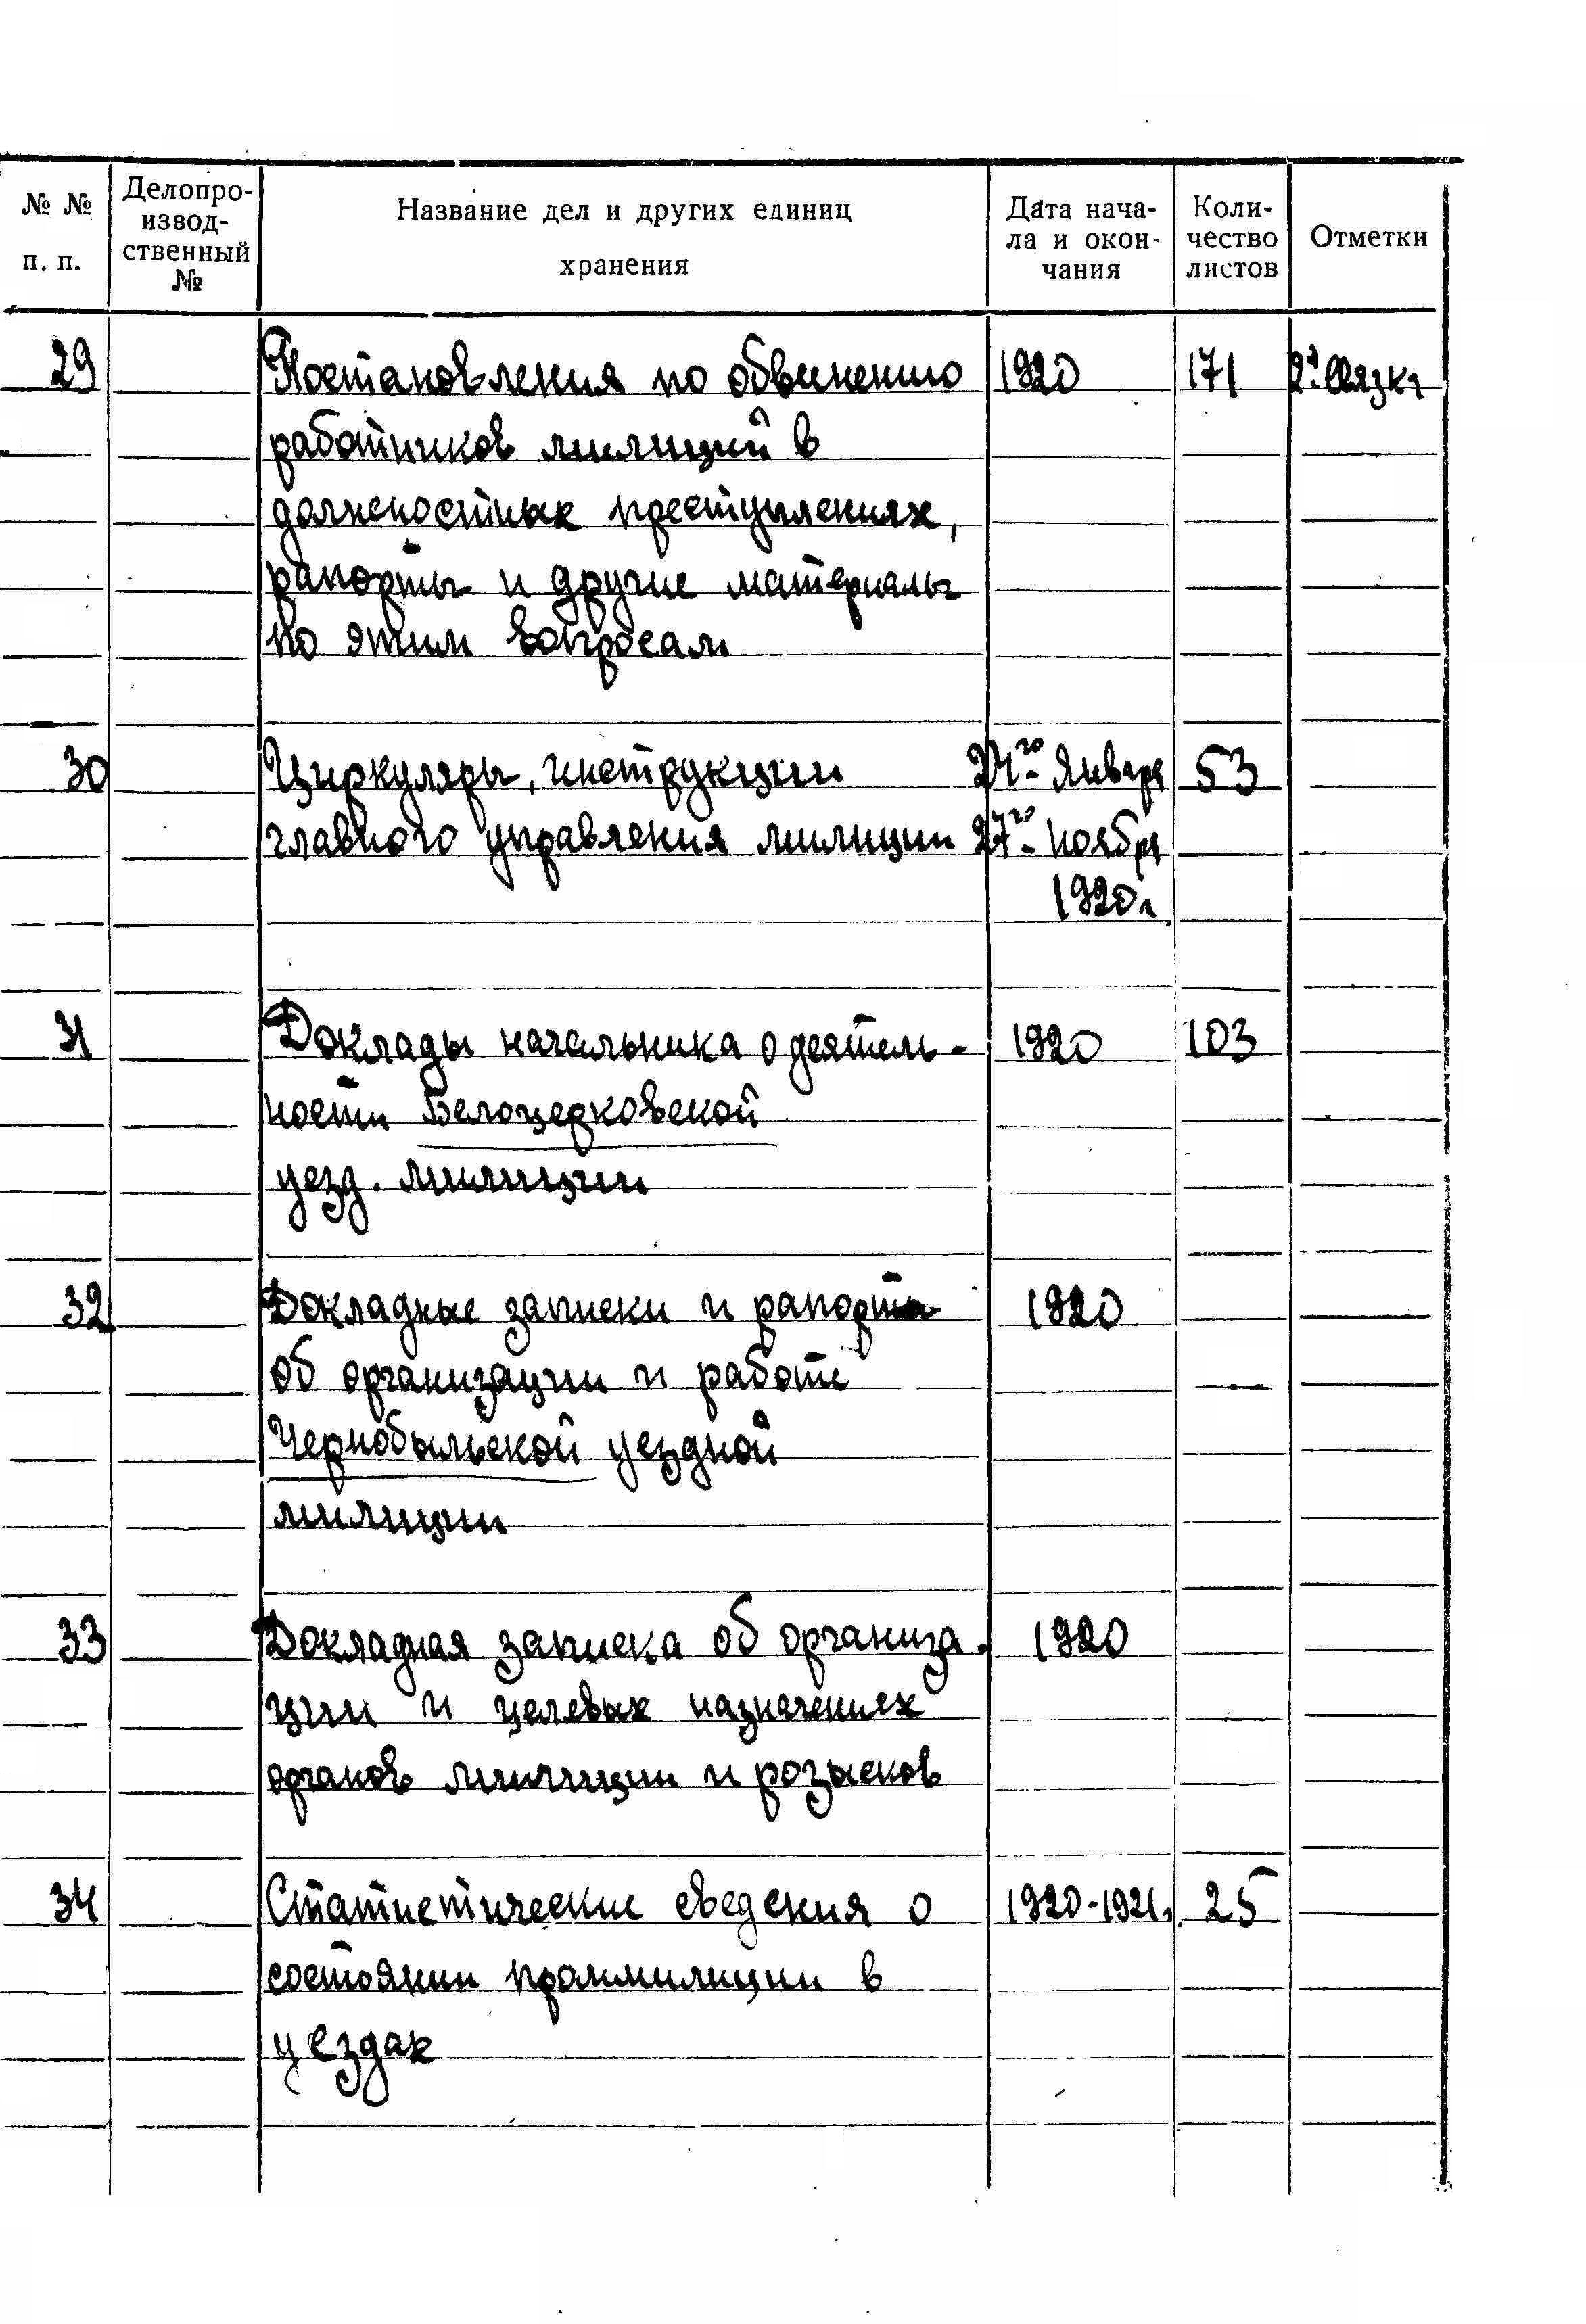 № № п. п.
Делопро-
извод-
ственный
№
Название дел и других единиц
хранения
Дата нача-
ла и окон-
чания
Коли-
чество
листов
Отметки
29 Постановления по обвинению 1920 171 2я Связка
работников милиций в
должностных преступлениях,
рапорты и другие материалы
по этим вопросам
30 Циркуляры, инструкции 24го Января 53
главного управления милиции 27го ноября
1920г.
31 Доклады начальника о деятель- 1920 103
ности Белоцерковской
уезд. милиции
32 Докладные записки и рапорта 1920
об организации и работе
Чернобыльской уездной
милиции
33 Докладная записка об организа- 1920
ции и целевых назначениях
органов милиции и розысков
34 Статистические сведения о 1920-1921г. 25
состоянии проммилиции в
уездах